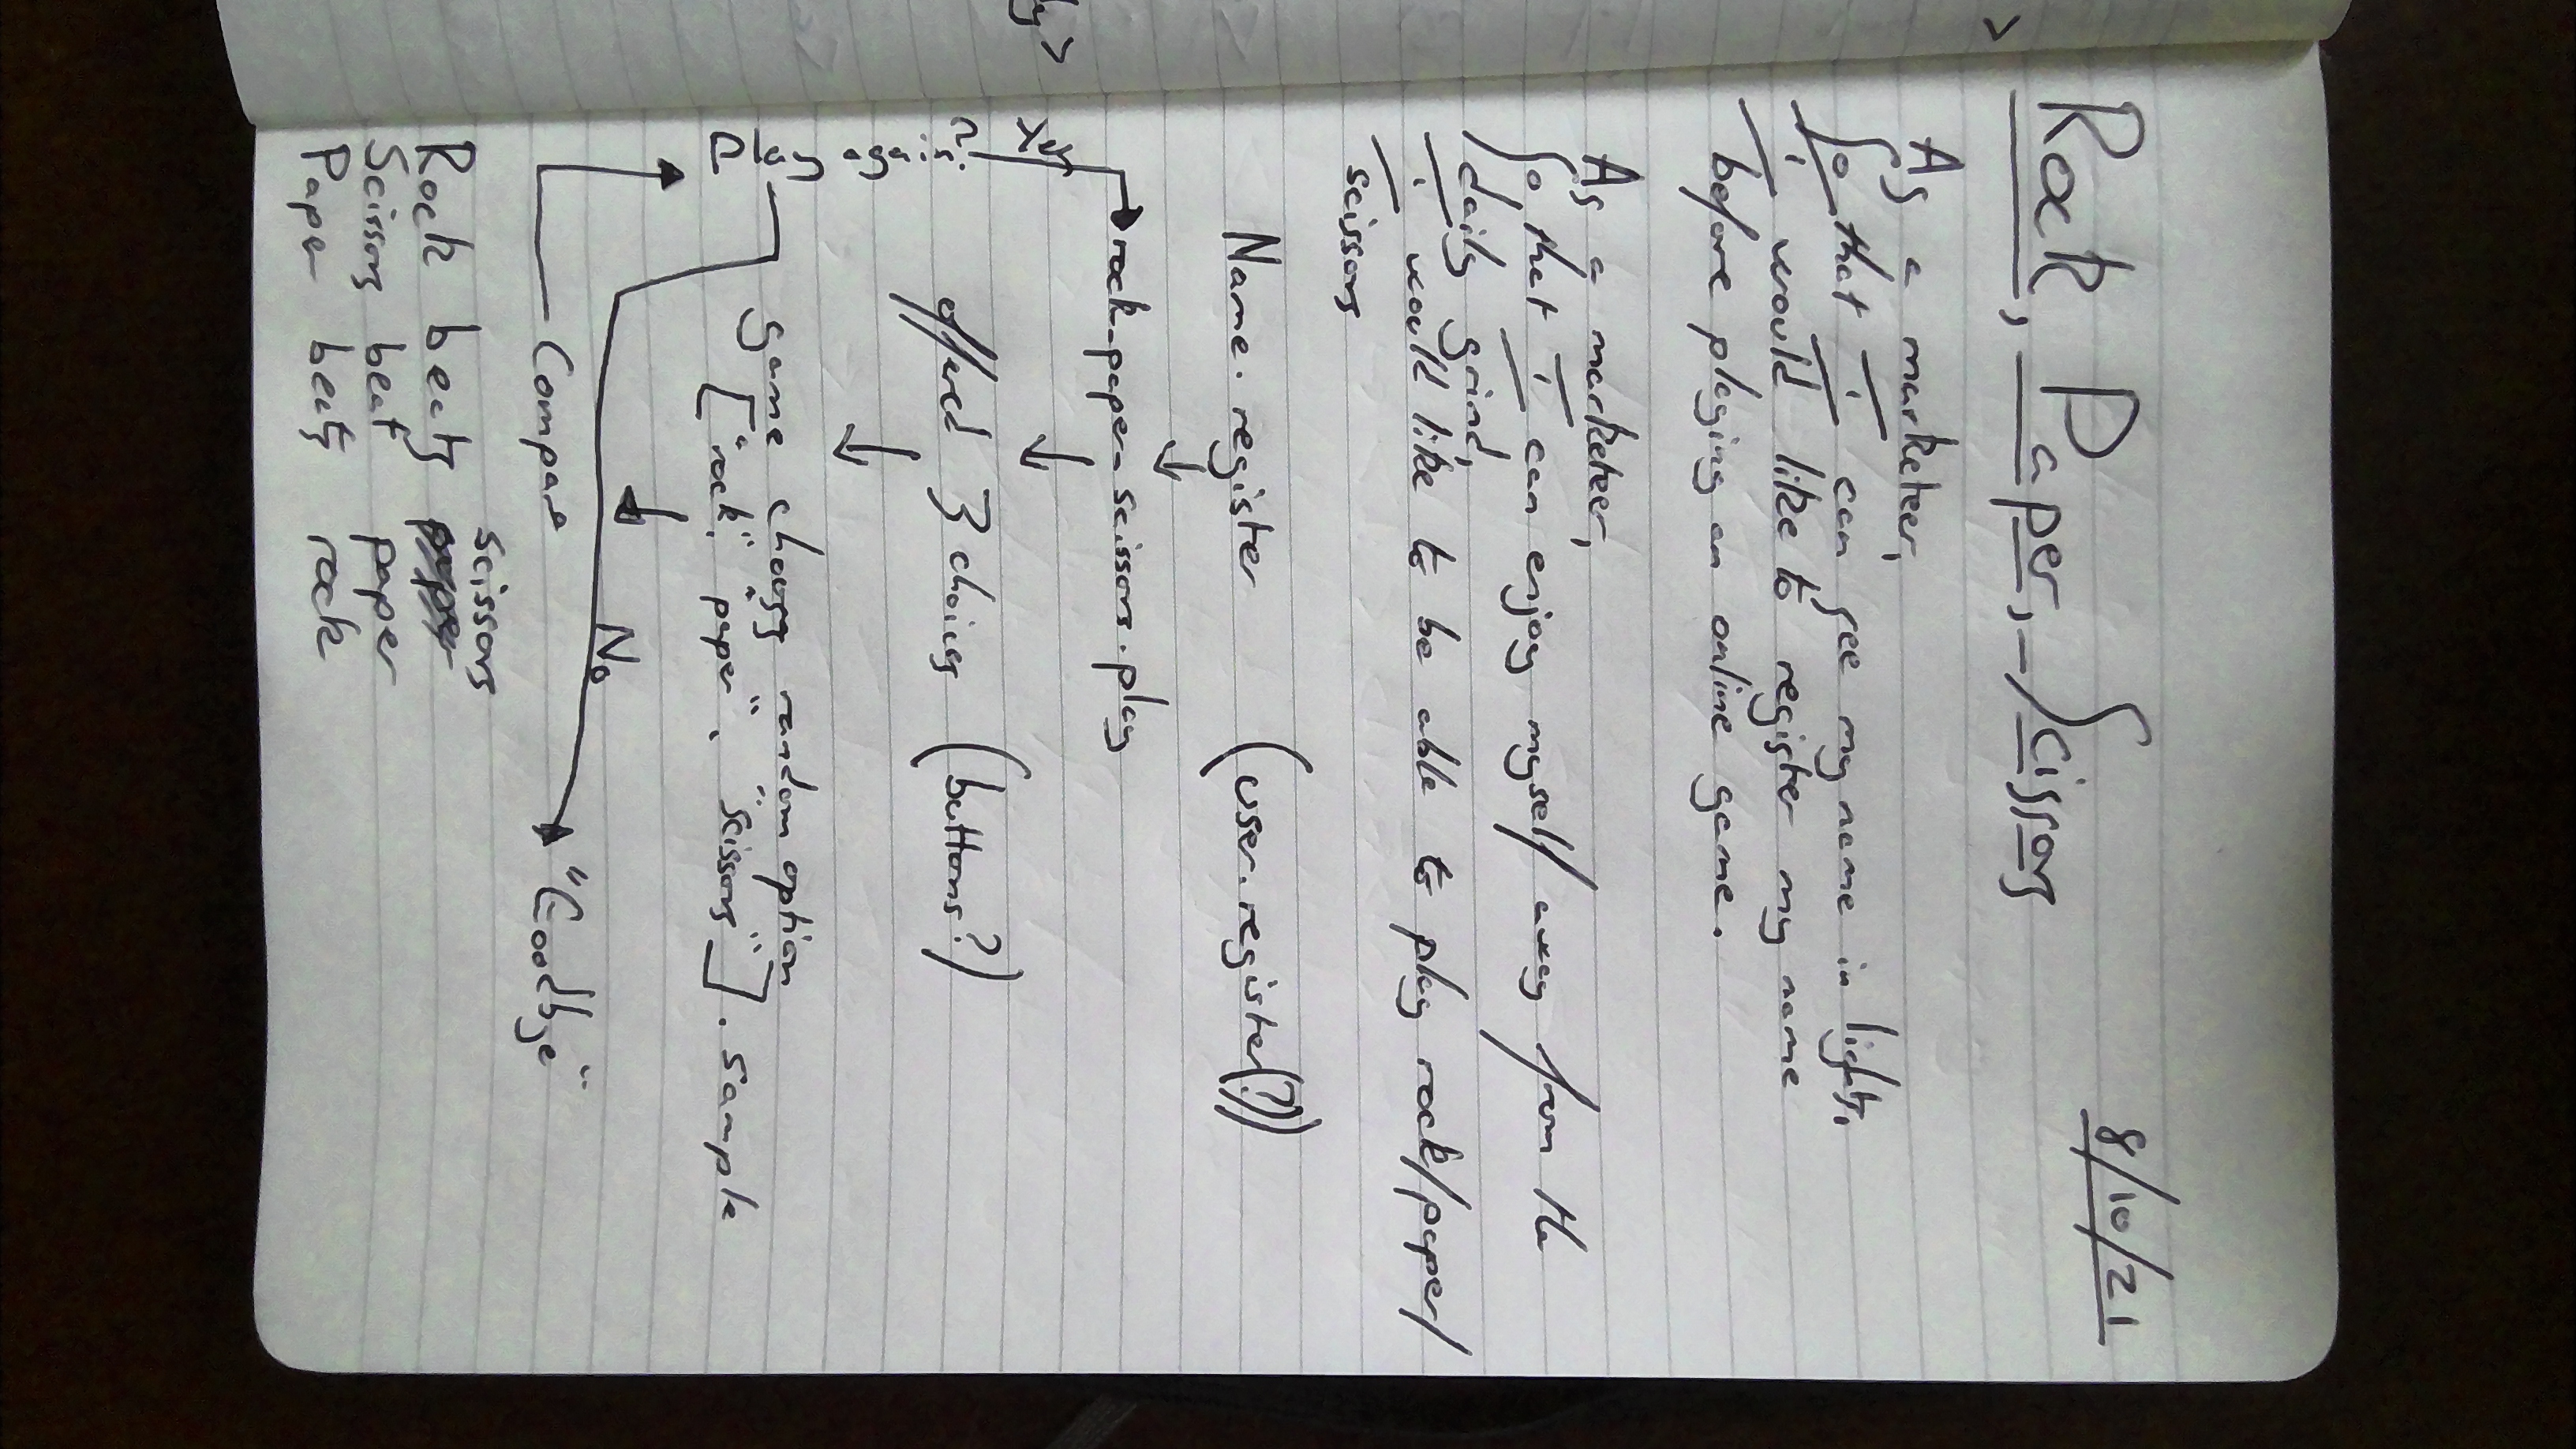 Rock, Paper, Scissors
8/10/21
As a marketeer,
So that I can see my name in lights,
I would like to register my name
before playing an online game.
As a marketeer,
So that I can enjoy myself away from the
daily grind,
I would like to be able to play rock/paper/
scissors
Name.register (user.register(?))
rock_paper_scissors.play
offered 3 choices (buttons?)
game chooses random option
["rock", "paper", "scissors"].sample
Compare
Play again? Yes
No
"Goodbye"
scissors
Rock beats
Scissors beat paper
Paper beats rock